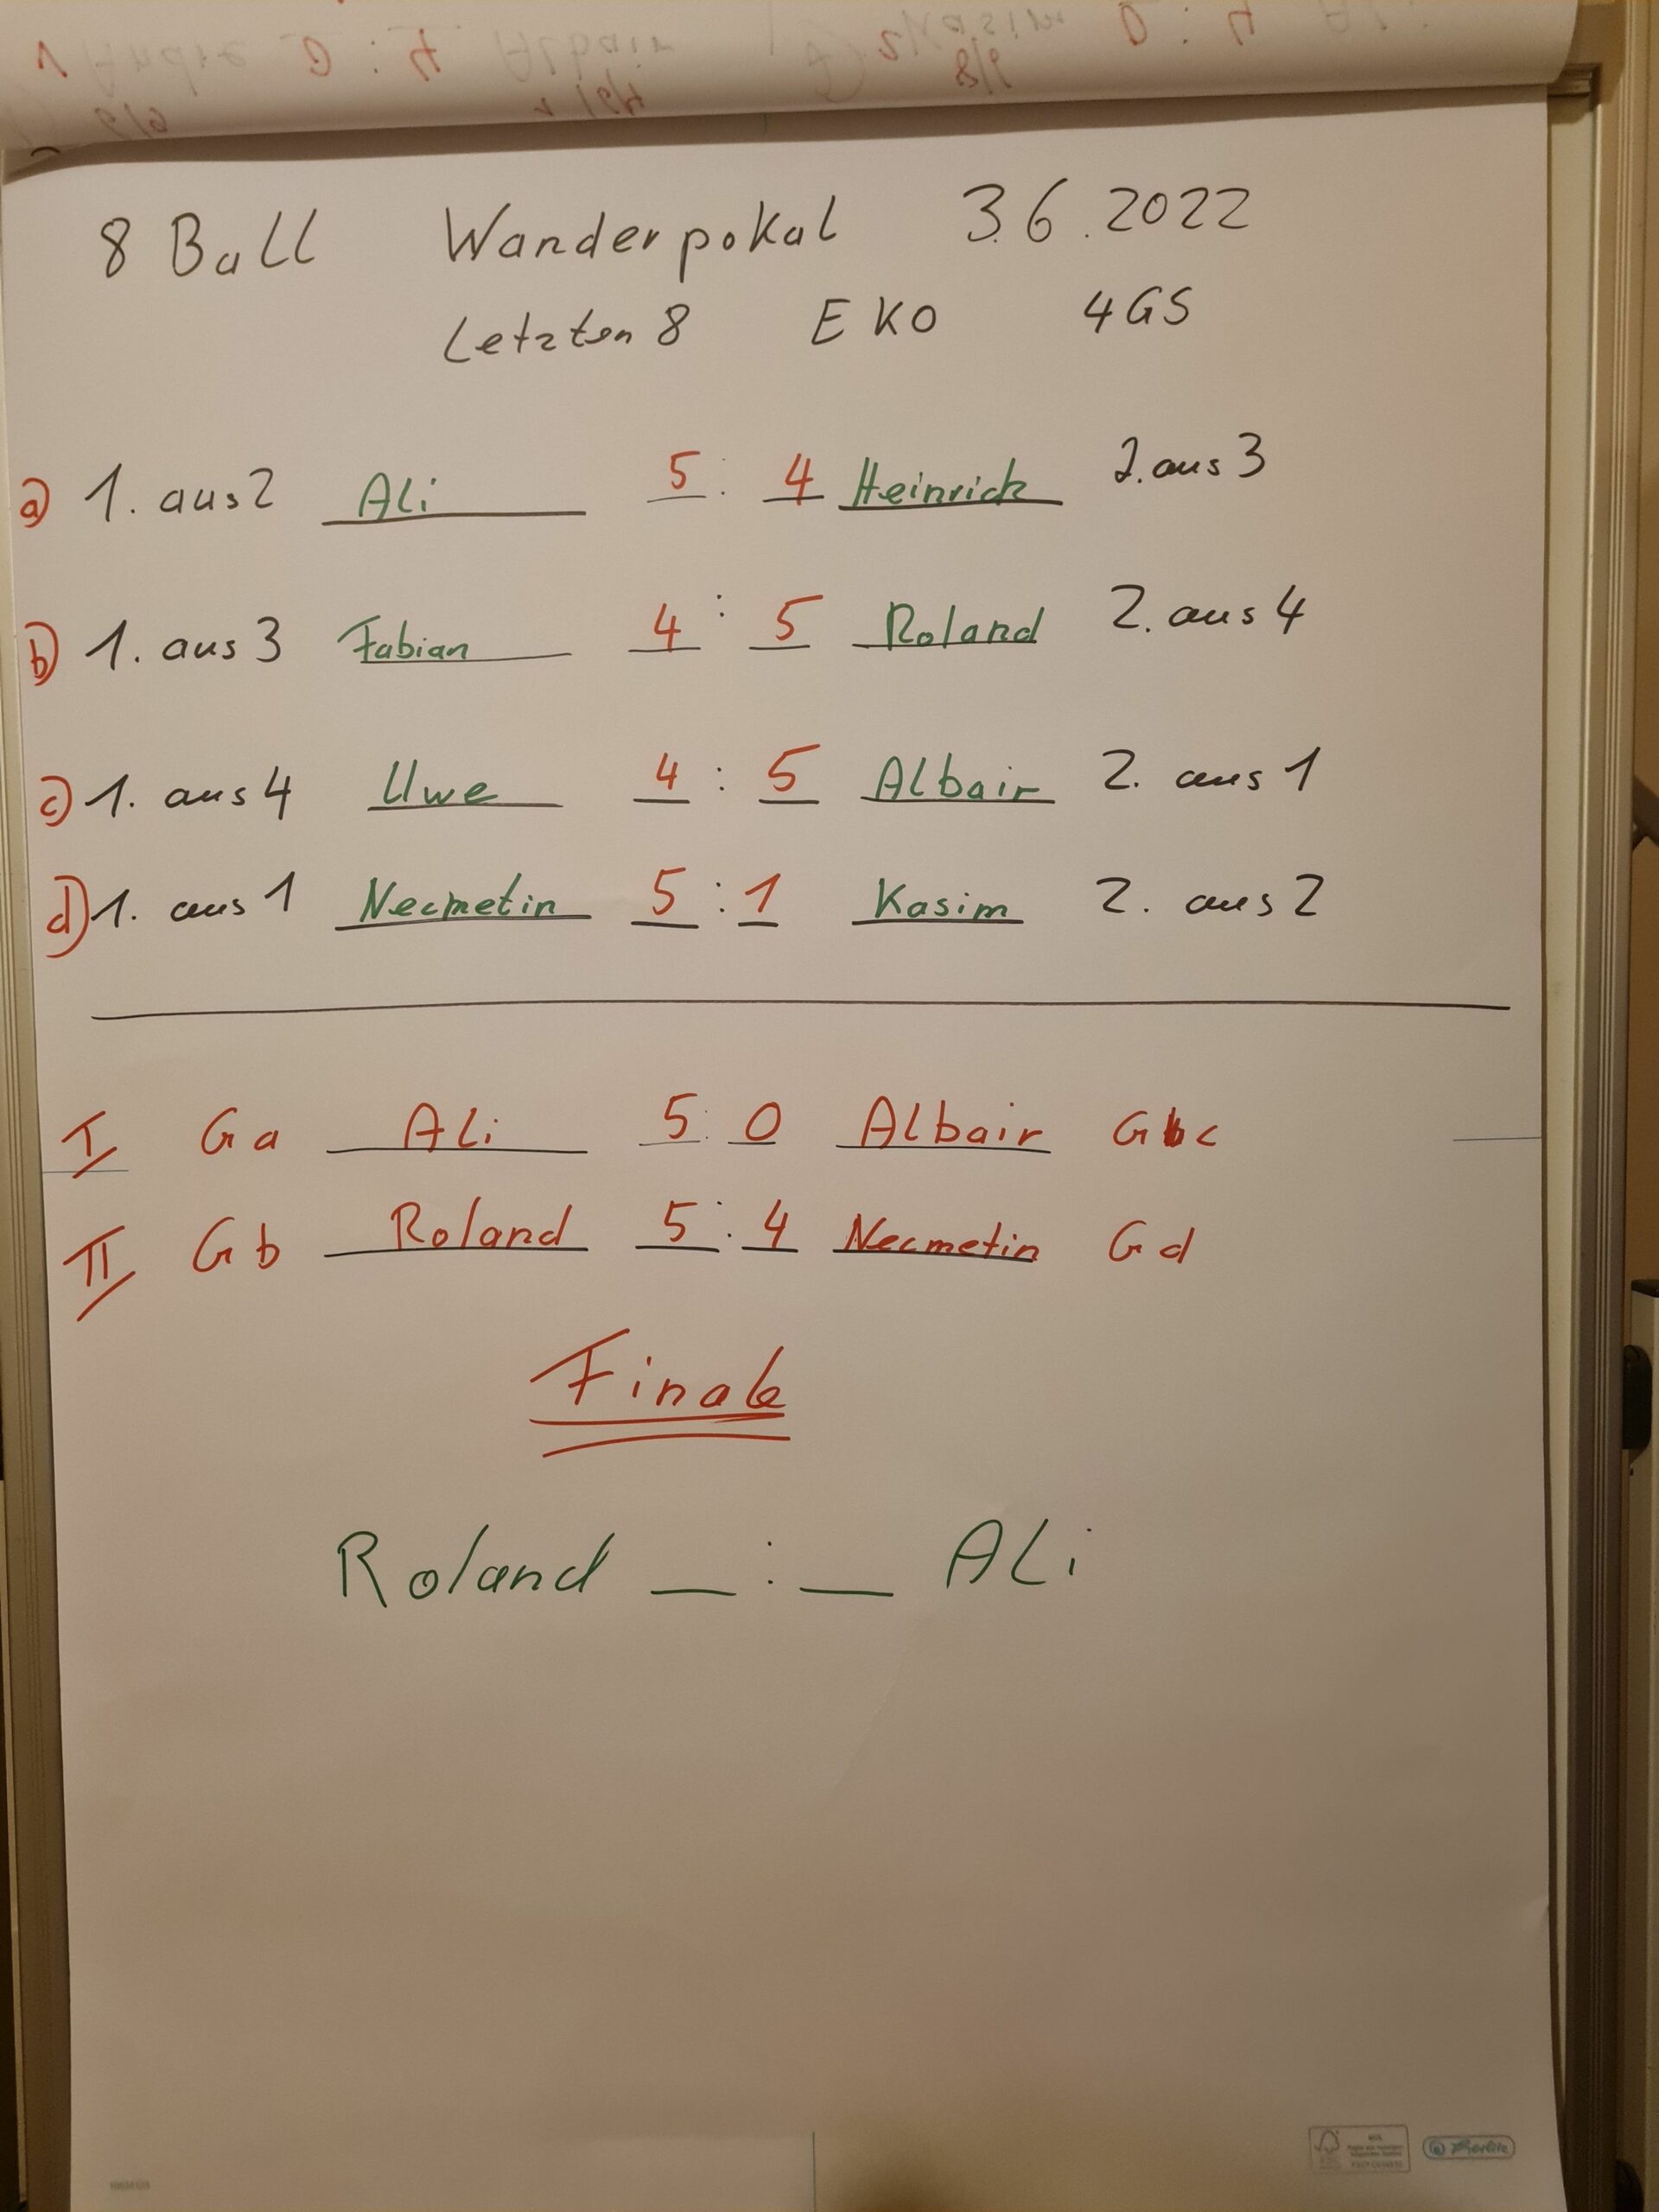 8 Ball Wanderpokal 3.6.2022
Letzten 8 EKO 4GS
a) 1. aus 2 Ali 5 : 4 Heinrich 2. aus 3
b) 1. aus 3 Fabian 4 : 5 Roland 2. aus 4
c) 1. aus 4 Uwe 4 : 5 Albair 2. aus 1
d) 1. aus 1 Necmetin 5 : 1 Kasim 2. aus 2
I Ga Ali 5 : 0 Albair G c
II Gb Roland 5 : 4 Necmetin Gd
Finale
Roland _ : _ Ali